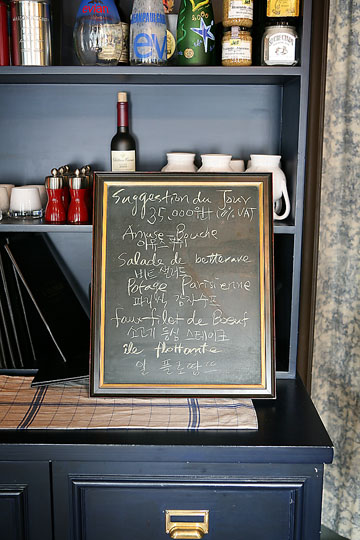 Suggestion du Jour
35,000원+10% VAT
Amuse-Bouche
아뮤즈부쉬
Salade de betterave
비트 샐러드
Potage Parisienne
파리식 감자수프
faux-filet de Boeuf
소고기 등심 스테이크
île flottante
일 플로땅뜨
ev